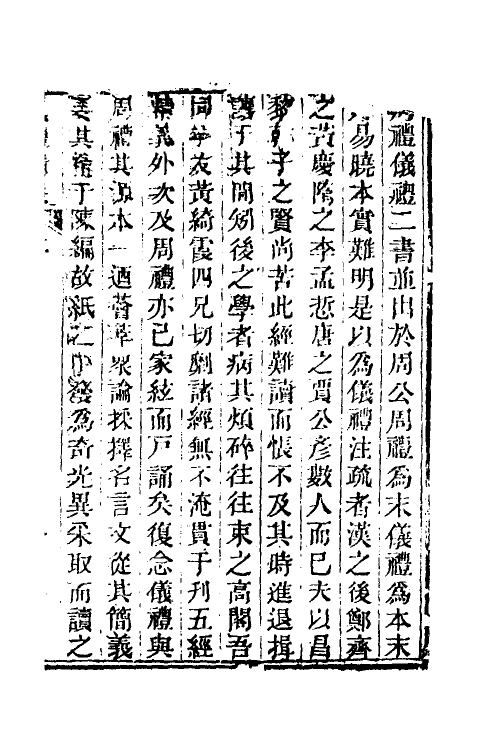 禮儀禮二書並出於周公周禮爲末儀禮爲本末
易曉本實難明是以爲儀禮注疏者漢之後鄭齊
之黃慶隋之李孟悊唐之賈公彥數人而已夫以昌
黎子之賢尚苦此經難讀而悵不及其時進退揖
讓于其間矧後之學者病其煩碎往往束之高閣吾
同年友黃綺霞四兄切劘諸經無不淹貫于刊五經
精義外次及周禮亦已家絃而戸誦矣復念儀禮與
周禮其源本一迺薈萃衆論採擇名言文從其簡義
其于陳編故紙之中發爲奇光異采取而讀之